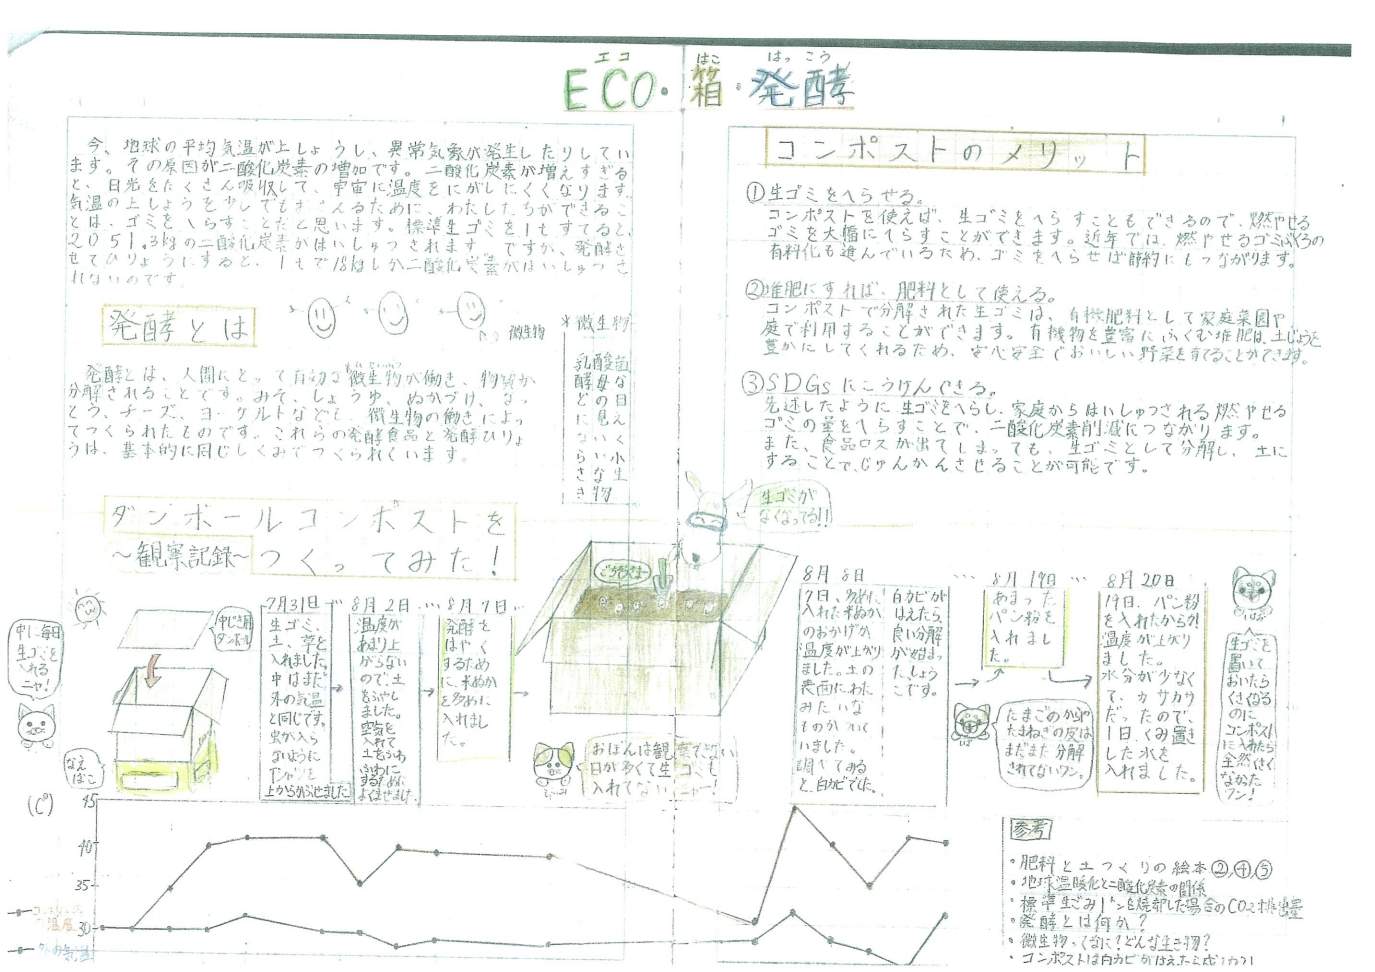 エコ はこ はっこう
ECO・箱・発酵
今、地球の平均気温が上しょうし、異常気象が発生したりしてい
ます。その原因が二酸化炭素の増加です。二酸化炭素が増えすぎる
と、日光をたくさん吸収して、宇宙に温度をにがしにくくなります。
気温の上しょうを少しでもおさえるために、わたしたちができるこ
とは、ゴミをへらすことだと思います。標準生ゴミを1tすてると、
2051.3kgの二酸化炭素がはいしゅつされます。ですが、発酵さ
せてひりょうにすると、1tで18kgしか二酸化炭素がはいしゅつさ
れないのです。
発酵とは
微生物
*微生物
乳酸菌
酵母な
どの目
に見え
ないく
らい小
さな生
き物
発酵とは、人間にとって有効な微生物が働き、物質が
分解されることです。みそ、しょうゆ、ぬかづけ、なっ
とう、チーズ、ヨーグルトなども、微生物の働きによっ
てつくられたものです。これらの発酵食品と発酵ひりょ
うは、基本的に同じしくみでつくられています。
コンポストのメリット
①生ゴミをへらせる。
コンポストを使えば、生ゴミをへらすこともできるので、燃やせる
ゴミを大幅にへらすことができます。近年では、燃やせるゴミぶくろの
有料化も進んでいるため、ゴミをへらせば節約にもつながります。
②堆肥にすれば、肥料として使える。
コンポストで分解された生ゴミは、有機肥料として家庭菜園や
庭で利用することができます。有機物を豊富にふくむ堆肥は、土じょうを
豊かにしてくれるため、安心安全でおいしい野菜を育てることができます。
③SDGsにこうけんできる。
先述したように生ゴミをへらし、家庭からはいしゅつされる燃やせる
ゴミの量をへらすことで、二酸化炭素削減につながります。
また、食品ロスが出てしまっても、生ゴミとして分解し、土に
することで、じゅんかんさせることが可能です。
ダンボールコンポストを
~観察記録~つくってみた!
生ゴミが
なくなってる!!
ごちそうさまー
中に毎日
生ゴミを
入れる
ニャ!
中じき用
ダンボール
なえ
ばこ
7月31日
生ゴミ、
土、草を
入れました。
中はまだ
外の気温
と同じです。
虫が入ら
ないように
Tシャツを
上からかぶせました。
8月2日
温度が
あまり上
がらない
ので、土
をふやし
ました。
空気を
入れて
土をふわ
ふわに
するために
よくまぜました。
8月7日
発酵を
はやく
するため
に、米ぬか
を多めに
入れまし
た。
おぼんは観察できない
日が多くて生ゴミも
入れてないニャー!
8月8日
7日、多めに
入れた米ぬか
のおかげか
温度が上がり
ました。土の
表面にわた
みたいな
ものがついて
いました。
調べてみる
と、白カビでした。
白カビが
はえたら、
良い分解
が始まっ
たしょう
こです。
8月19日
あまった
パン粉を
入れまし
た。
たまごのからや
たまねぎの皮は
まだまだ分解
されてないワン。
8月20日
19日、パン粉
を入れたからか
温度が上がり
ました。
水分が少なく
て、カサカサ
だったので、
1日、くみ置き
した水を
入れました。
生ゴミを
置いて
おいたら
くさくなる
のに
コンポスト
に入れたら
全然くさく
なかった
ワン!
(C°)
45
40
35
30
コンポスト内
の温度
外の気温
参考
・肥料と土つくりの絵本②,④,⑤
・地球温暖化と二酸化炭素の関係
・標準生ごみ1トンを焼却した場合のCO2排出量
・発酵とは何か?
・微生物ってなに?どんな生き物?
・コンポストは白カビがはえたら成功?!